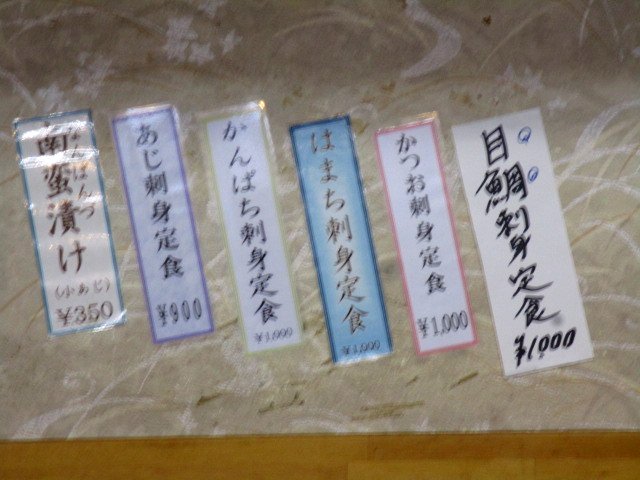 目鯛刺身定食
¥1,000
かつお刺身定食
¥1,000
はまち刺身定食
¥1,000
がんぱち刺身定食
¥1,000
あじ刺身定食
¥900
なんばんづ
南蛮漬け
(小あじ)
¥350